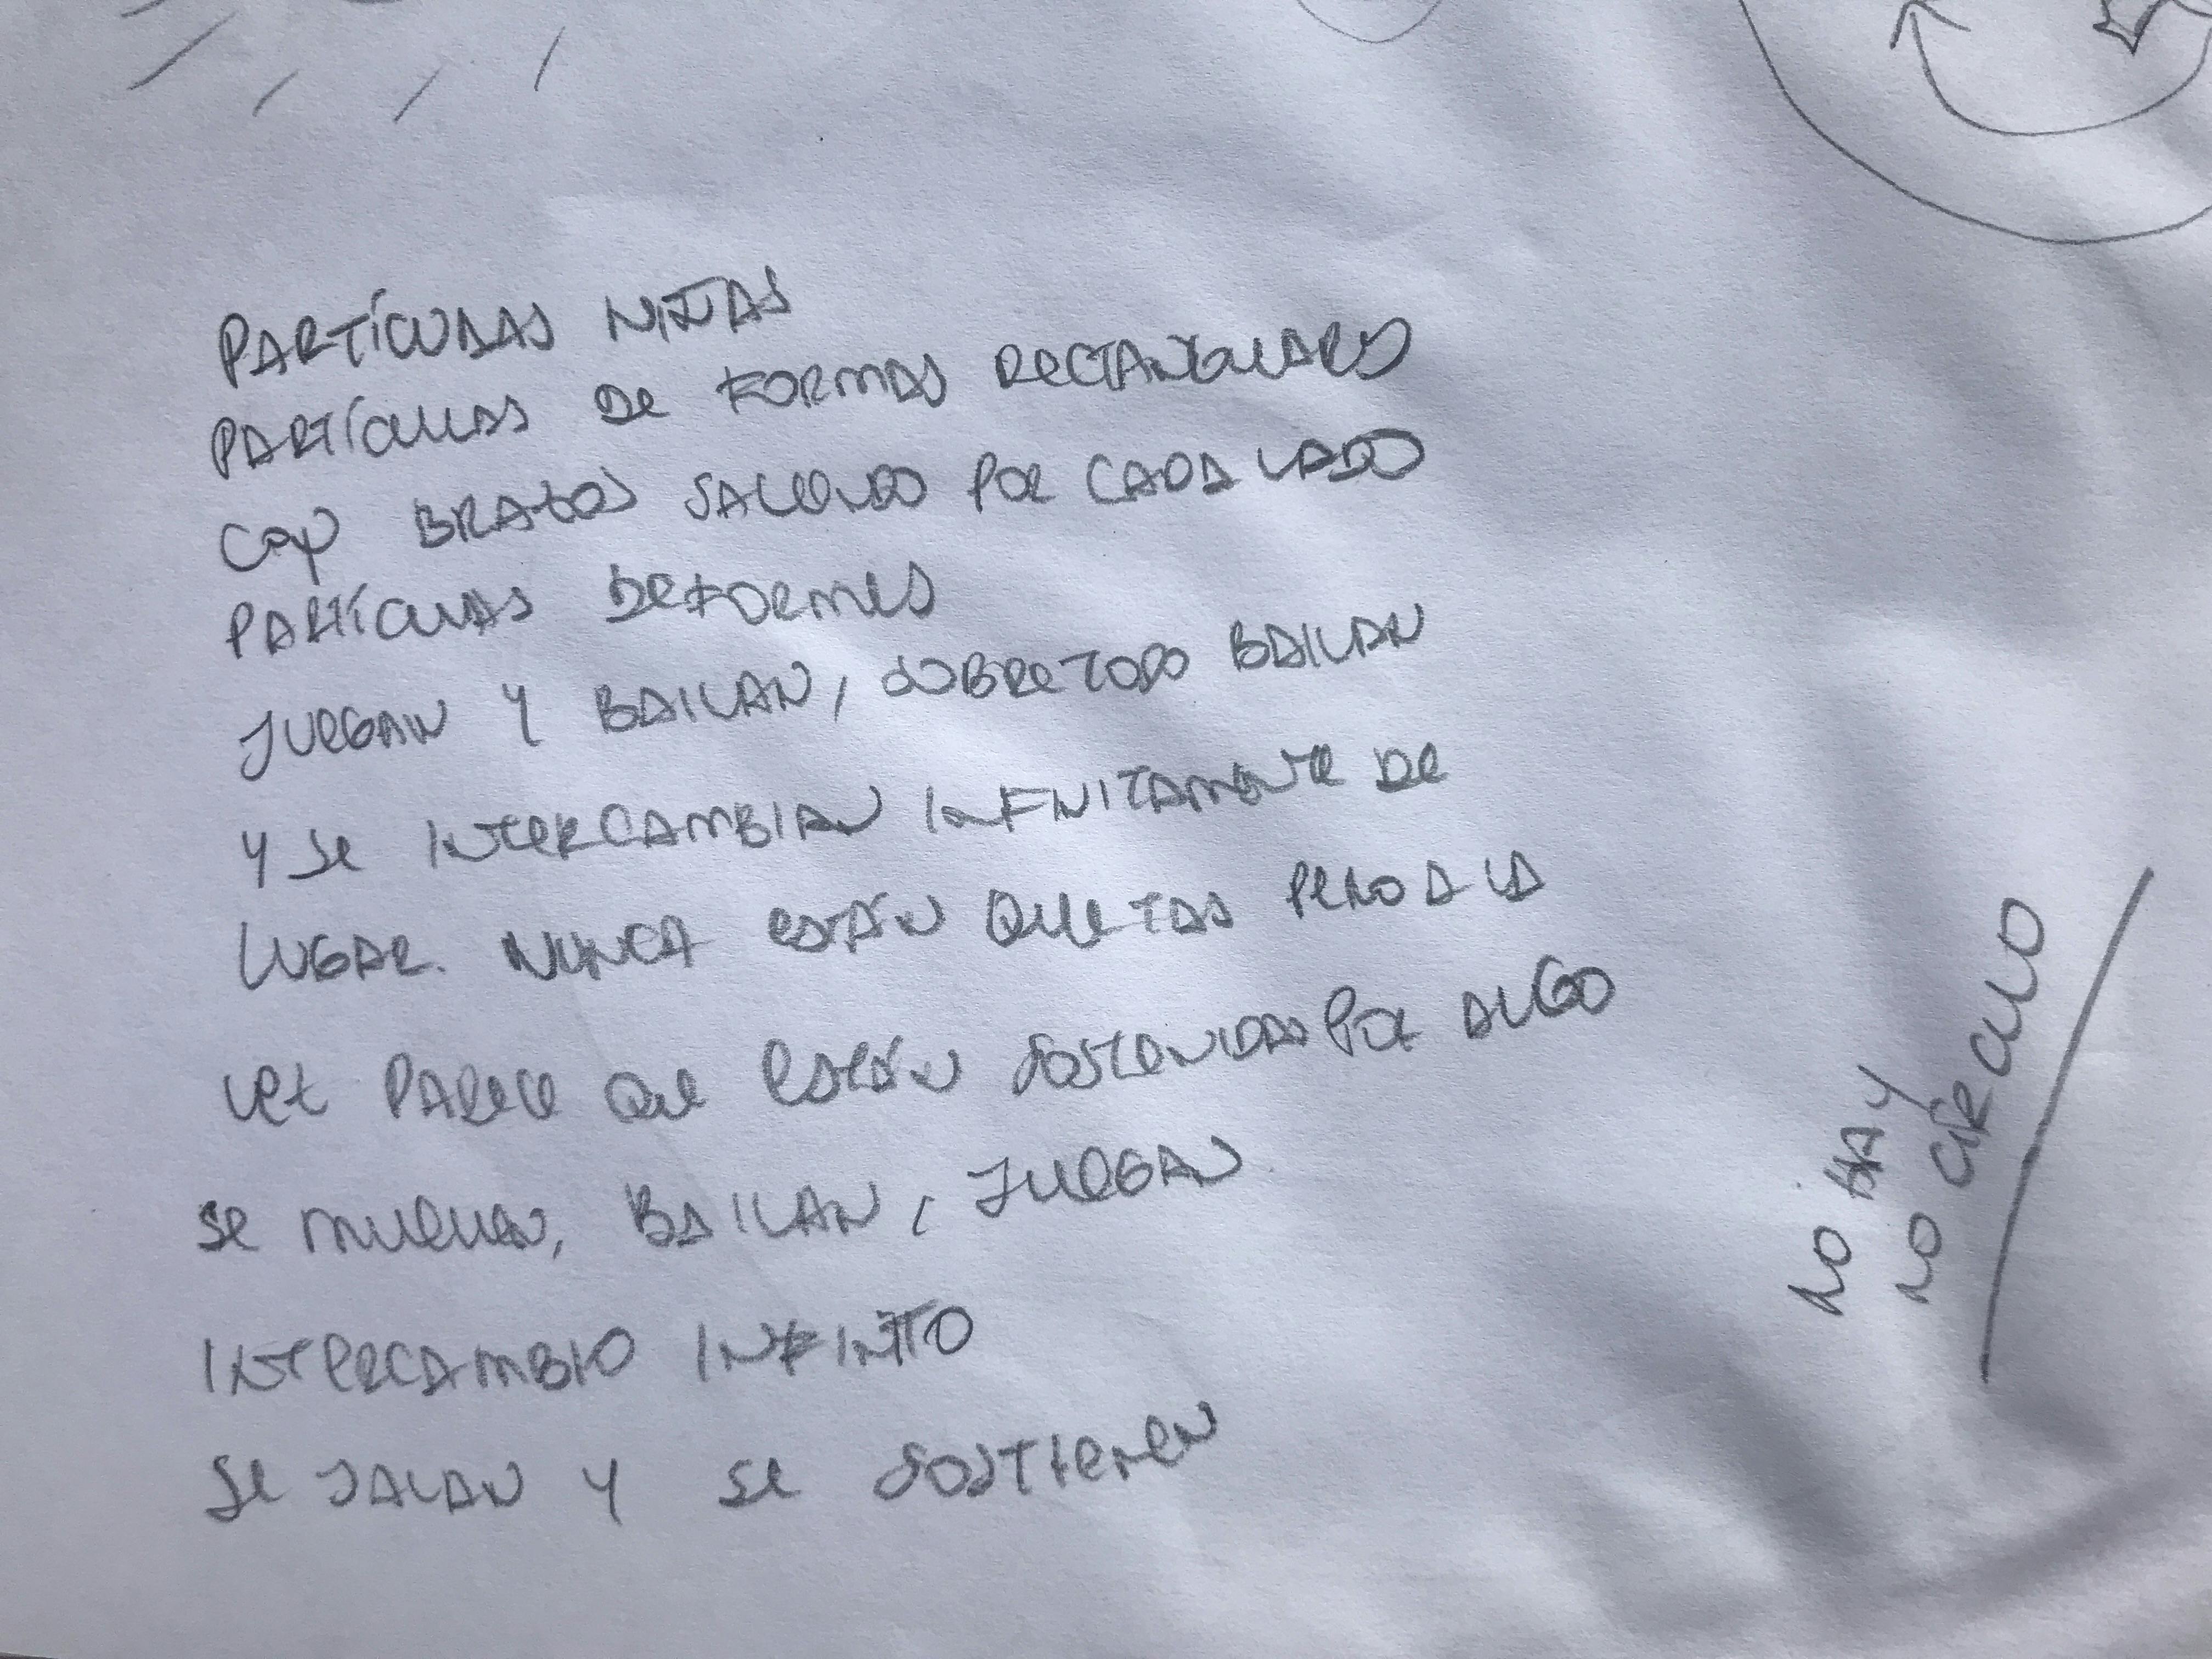 PARTÍCULAS NIÑAS
PARTÍCULAS DE FORMAS RECTANGULARES
CON BRAZOS SALIENDO POR CADA LADO
PARTÍCULAS DEFORMES
JUEGAN Y BAILAN, SOBRE TODO BAILAN
Y SE INTERCAMBIAN INFINITAMENTE DE
LUGAR. NUNCA ESTÁN QUIETAS PERO A LA
VEZ PARECE QUE ESTÁN SOSTENIDAS POR ALGO
SE MUEVEN, BAILAN, JUEGAN
INTERCAMBIO INFINITO
SE JALAN Y SE SOSTIENEN
NO HAY
NO CÍRCULO